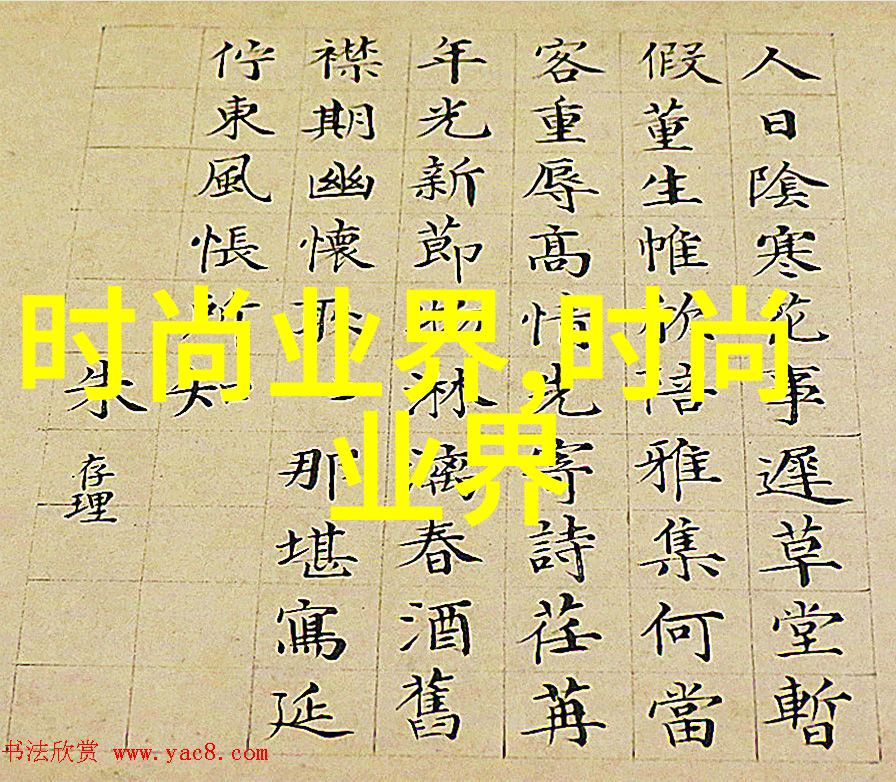 人日陰寒花事遲草堂暫
假董生帷欣陪雅集何當
客重辱高情先寄詩荏苒
年光新節物淋漓春酒舊
襟期幽懷耿那堪寫延
佇東風悵所知
朱存理
时尚业界,时尚
业界
书法欣赏 www.yac8.com